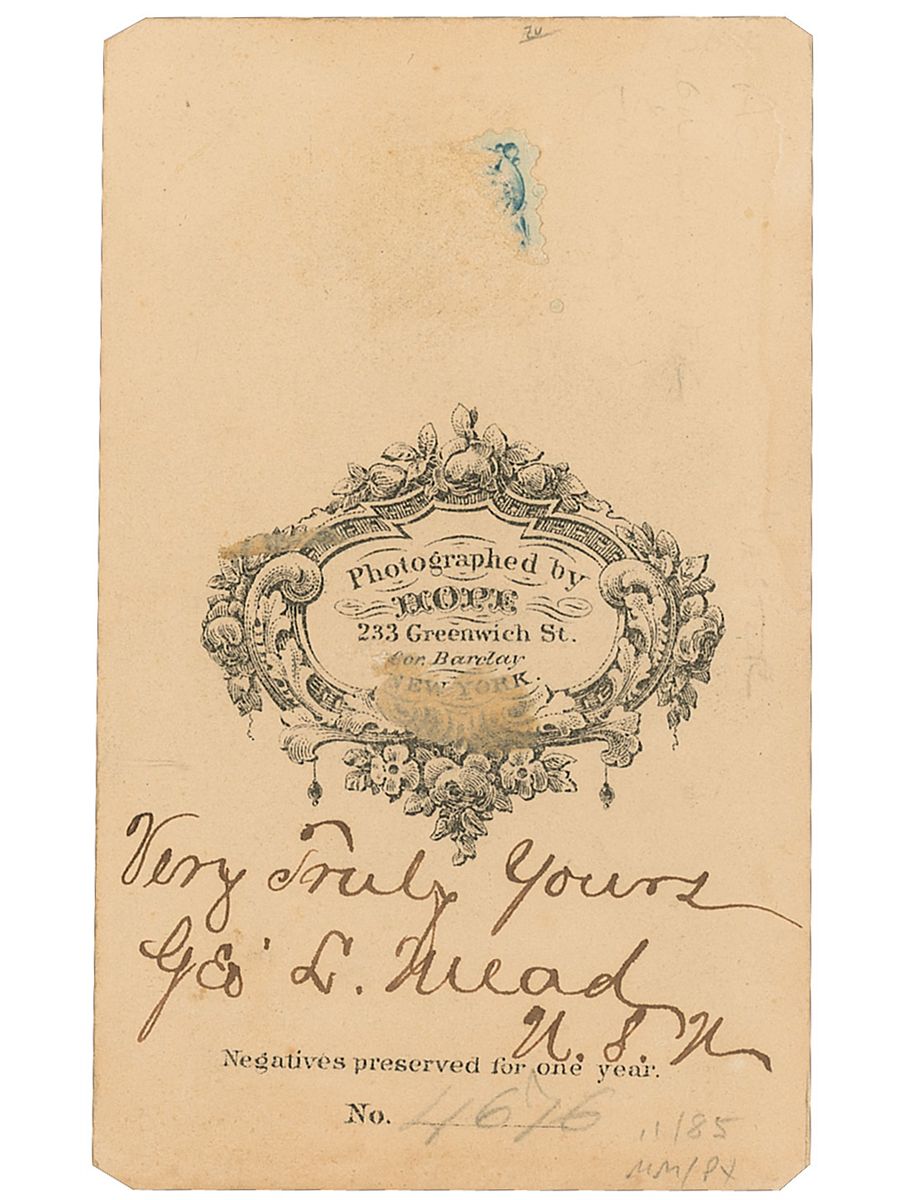 Photographed by
HOPE
233 Greenwich St.
Cor. Barclay
NEW YORK.
Very Truly Yours
Geo L. Mead
U. S. N
Negatives preserved for one year.
No. 4676
11/85